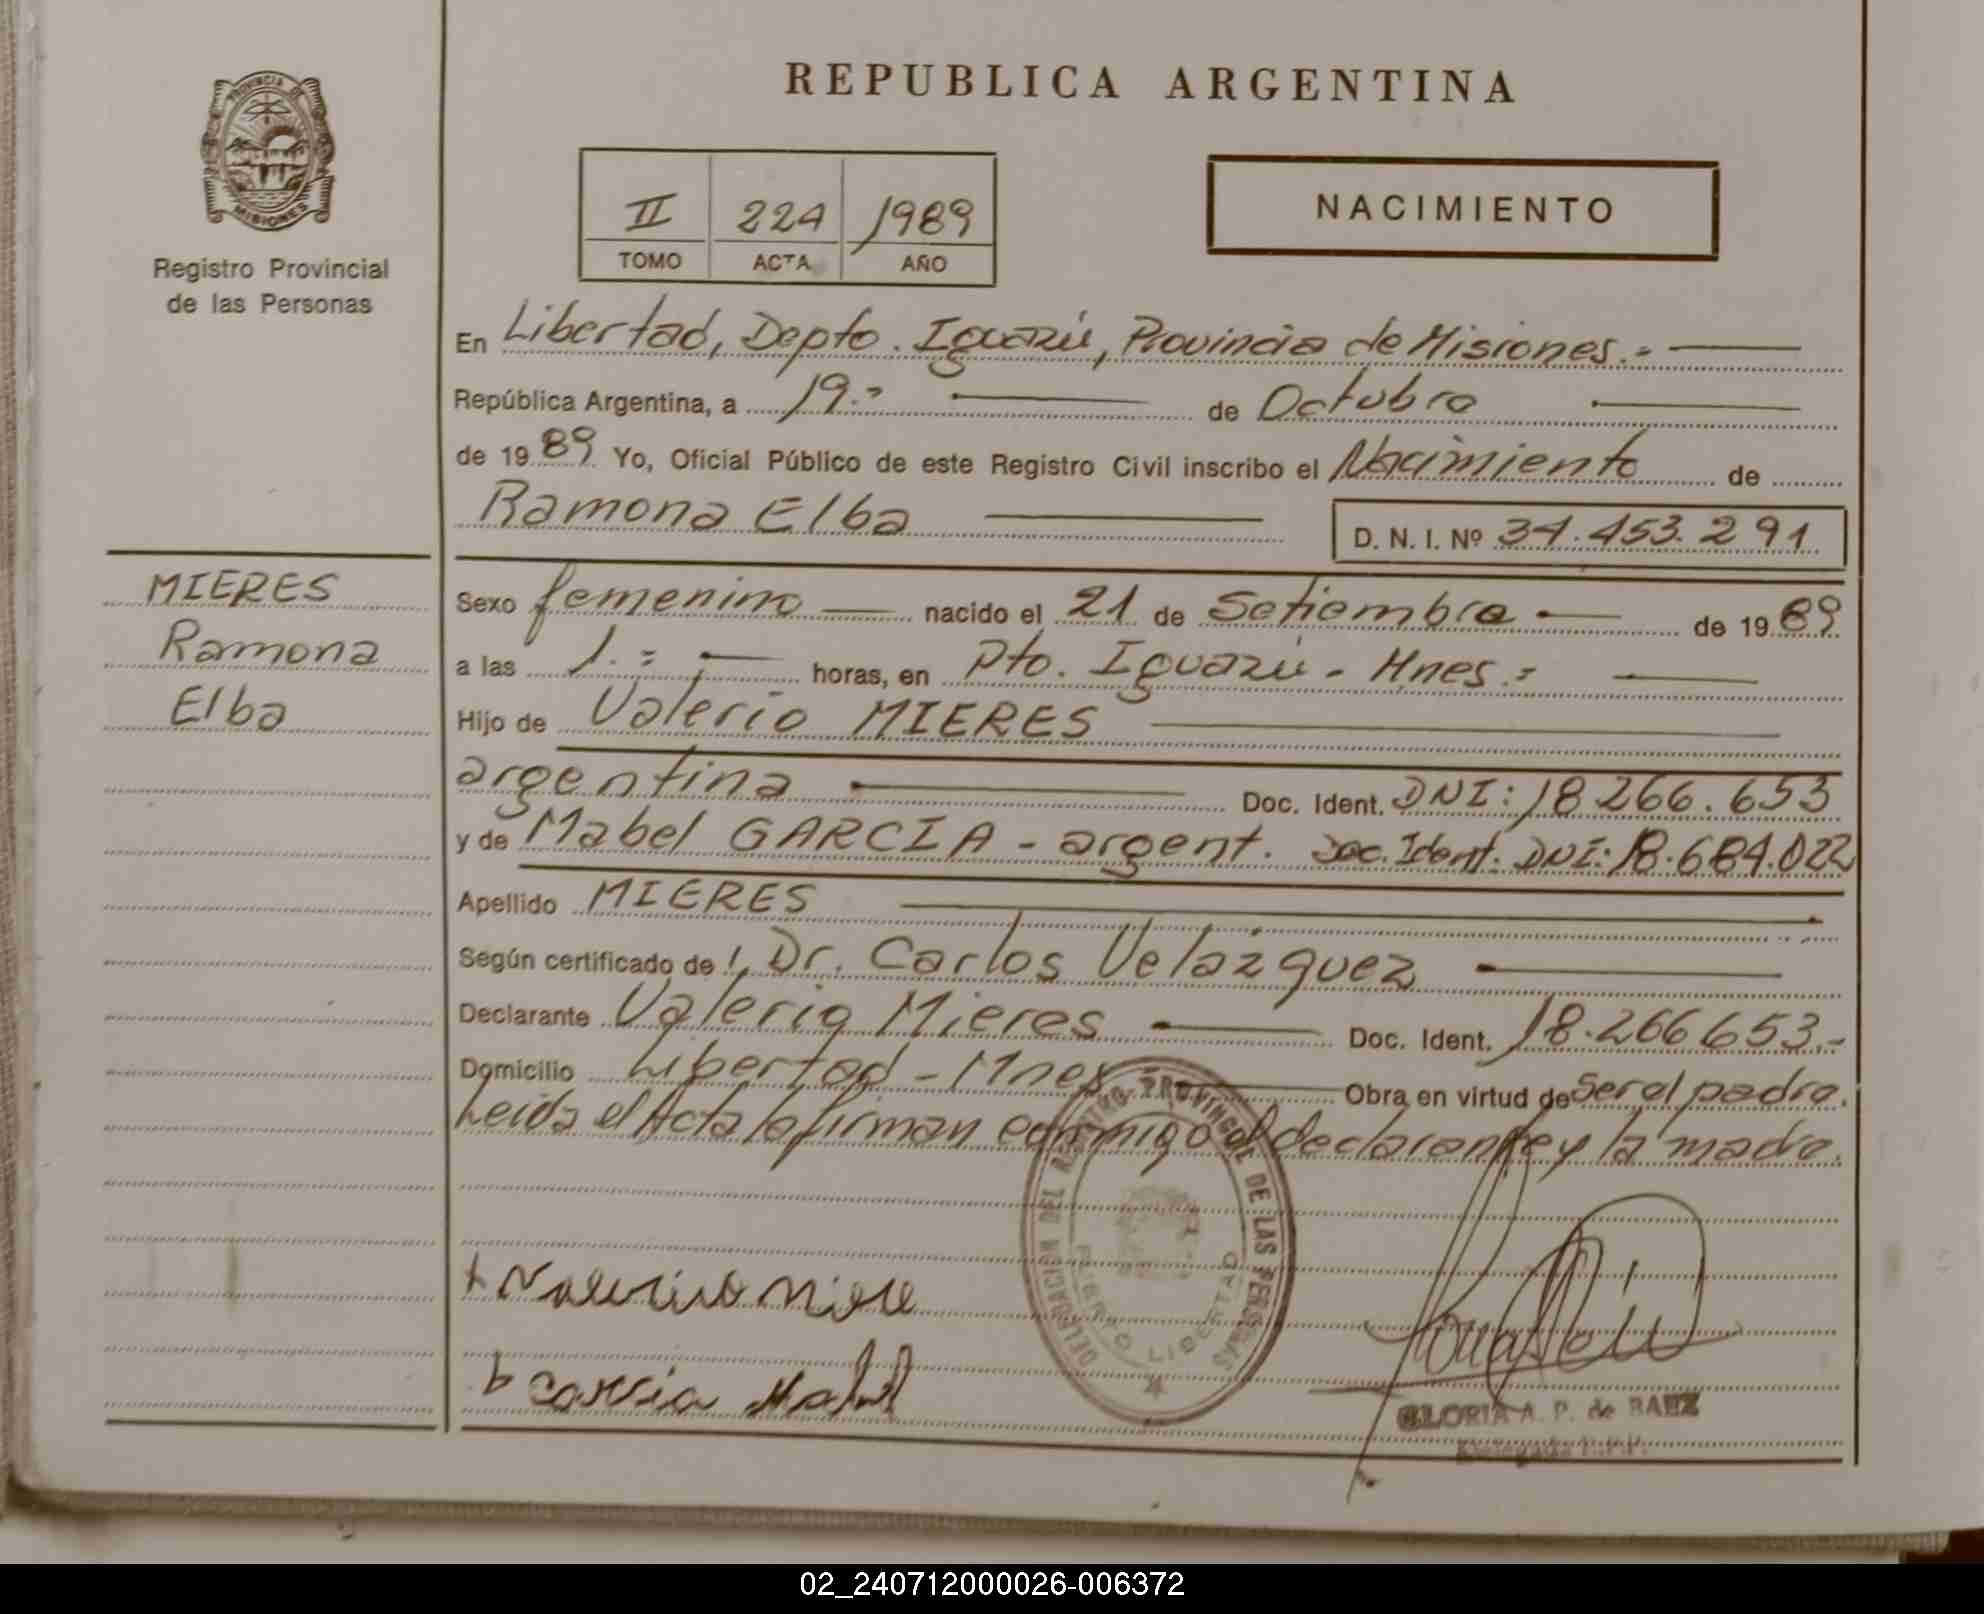 REPUBLICA ARGENTINA
PROVINCIA DE
MISIONES
Registro Provincial
de las Personas
II 224 1989
TOMO ACTA AÑO
NACIMIENTO
En Libertad, Depto. Iguazú, Provincia de Misiones.-
República Argentina, a 19.- de Octubre
de 1989 Yo, Oficial Público de este Registro Civil inscribo el Nacimiento de
Ramona Elba D. N. I. Nº 34.453.291
MIERES
Ramona
Elba
Sexo femenino nacido el 21 de Setiembre de 1989
a las 1.= horas, en Pto. Iguazú - Mnes.=
Hijo de Valerio MIERES
argentina Doc. Ident. DNI: 18.266.653
y de Mabel GARCIA - argent. Doc. Ident. DNI: 18.684.022
Apellido MIERES
Según certificado de Dr. Carlos Velázquez
Declarante Valerio Mieres Doc. Ident. 18.266653.-
Domicilio Libertad - Mnes Obra en virtud de Ser el padre.
Leida el Acta la firman conmigo el declarante y la madre.
DELEGACION DEL REGISTRO PROVINCIAL DE LAS PERSONAS
PUERTO LIBERTAD
Garcia Mabel
GLORIA A. P. de BAEZ
Delegada R.P.P.
02_240712000026-006372